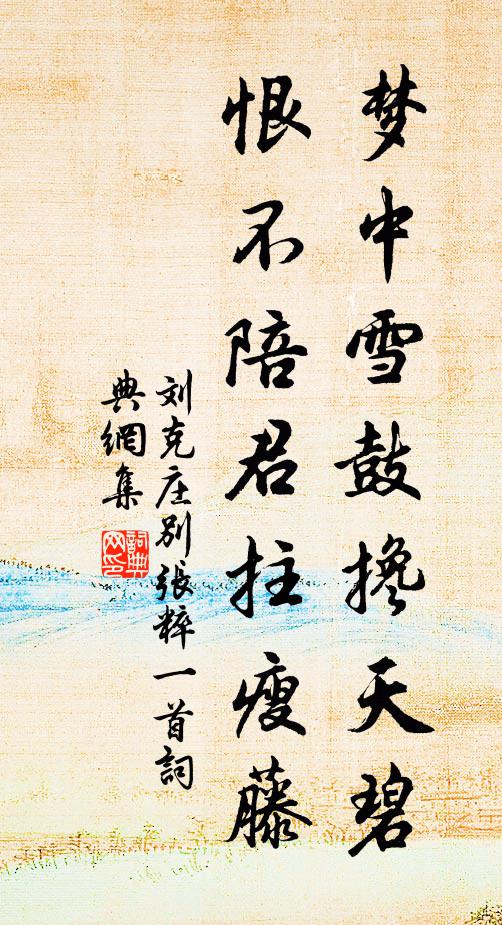 梦中雪鼓搀天碧
恨不陪君拄瘦藤
刘克庄别張粹一首詞
典網集
詞典
网印